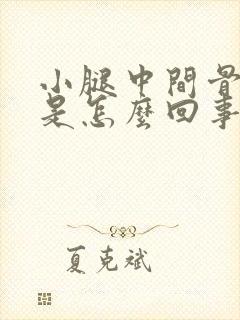 小腿中間骨
是怎麼回事
夏克斌